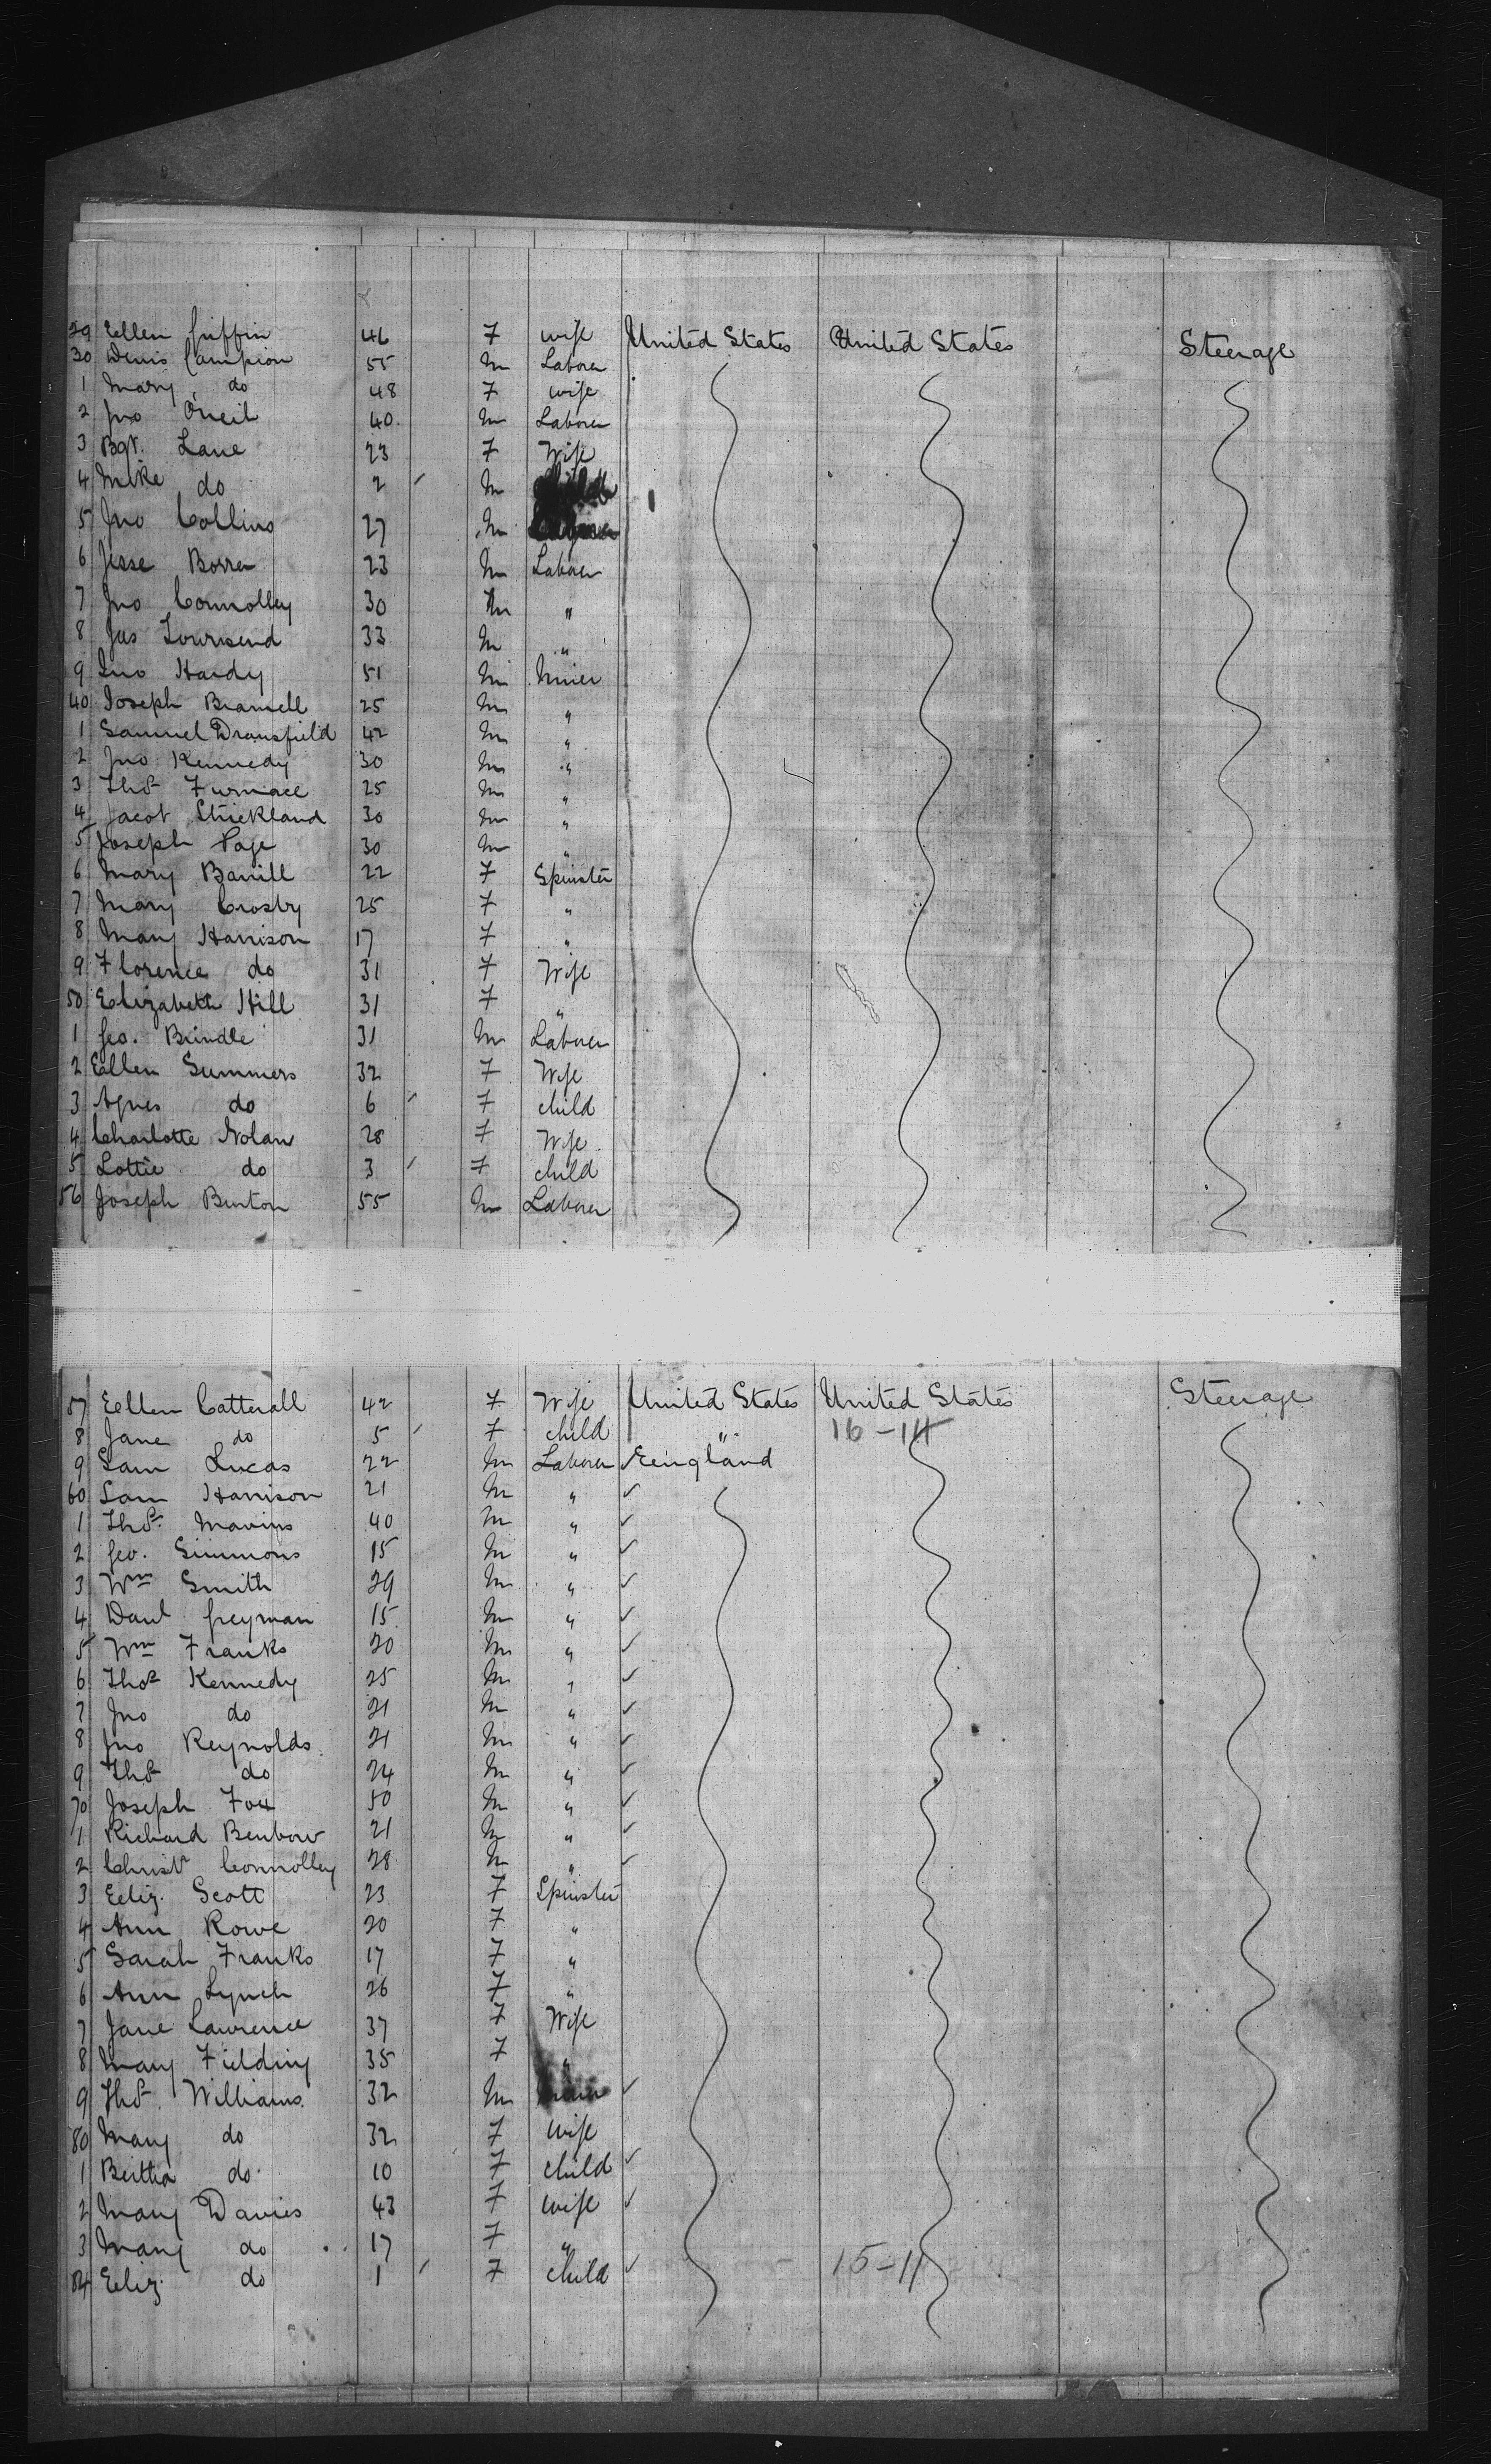 29 Ellen Griffin 46 F wife United States United States Steerage
30 Denis Campion 55 M Laborer
1 Mary do 48 F wife
2 Jno O'Neil 40 M Laborer
3 Bgt. Lane 23 F Wife
4 Mike do 2 M
5 Jno Collins 27 M
6 Jesse 23 M Laborer
7 Jno Connolley 30 M "
8 Jas Townsend 33 M "
9 Jno Hardy 51 M Miner
40 Joseph Bramell 25 M "
1 Samuel Dransfield 42 M "
2 Jno Kennedy 30 M "
3 Thos Furnace 25 M "
4 Jacob Strickland 30 M "
5 Joseph Page 30 M "
6 Mary 22 F Spinster
7 Mary Crosby 25 F "
8 Mary Harrison 17 F "
9 Florence do 31 F Wife
50 Elizabeth Hill 31 F "
1 Geo. Brindle 31 M Laborer
2 Ellen Summers 32 F Wife
3 Agnes do 6 F child
4 Charlotte Nolan 28 F Wife
5 Lottie do 3 F child
56 Joseph Burton 55 M Laborer
57 Ellen Catterall 42 F Wife United States United States Steerage
8 Jane do 5 F child " 16-14
9 Sam Lucas 22 M Laborer England
60 Sam Harrison 21 M "
1 Thos. Mavins 40 M "
2 Geo. Simmons 15 M "
3 Wm Smith 29 M "
4 Danl Greyman 15 M "
5 Wm Franks 20 M "
6 Thos Kennedy 25 M "
7 Jno do 21 M "
8 Jno Reynolds 21 M "
9 Thos do 24 M "
70 Joseph Fox 50 M "
1 Richard Benbow 21 M "
2 Christr Connolley 28 M "
3 Eliz. Scott 23 F Spinster
4 Ann Rowe 20 F "
5 Sarah Franks 17 F "
6 Ann Lynch 26 F "
7 Jane Lawrence 37 F Wife
8 Mary Fielding 35 F "
9 Thos. Williams 32 M
80 Mary do 32 F wife
1 Bertha do 10 F child
2 Mary Davies 43 F wife
3 Mary do 17 F "
84 Eliz. do 1 F child 15-11